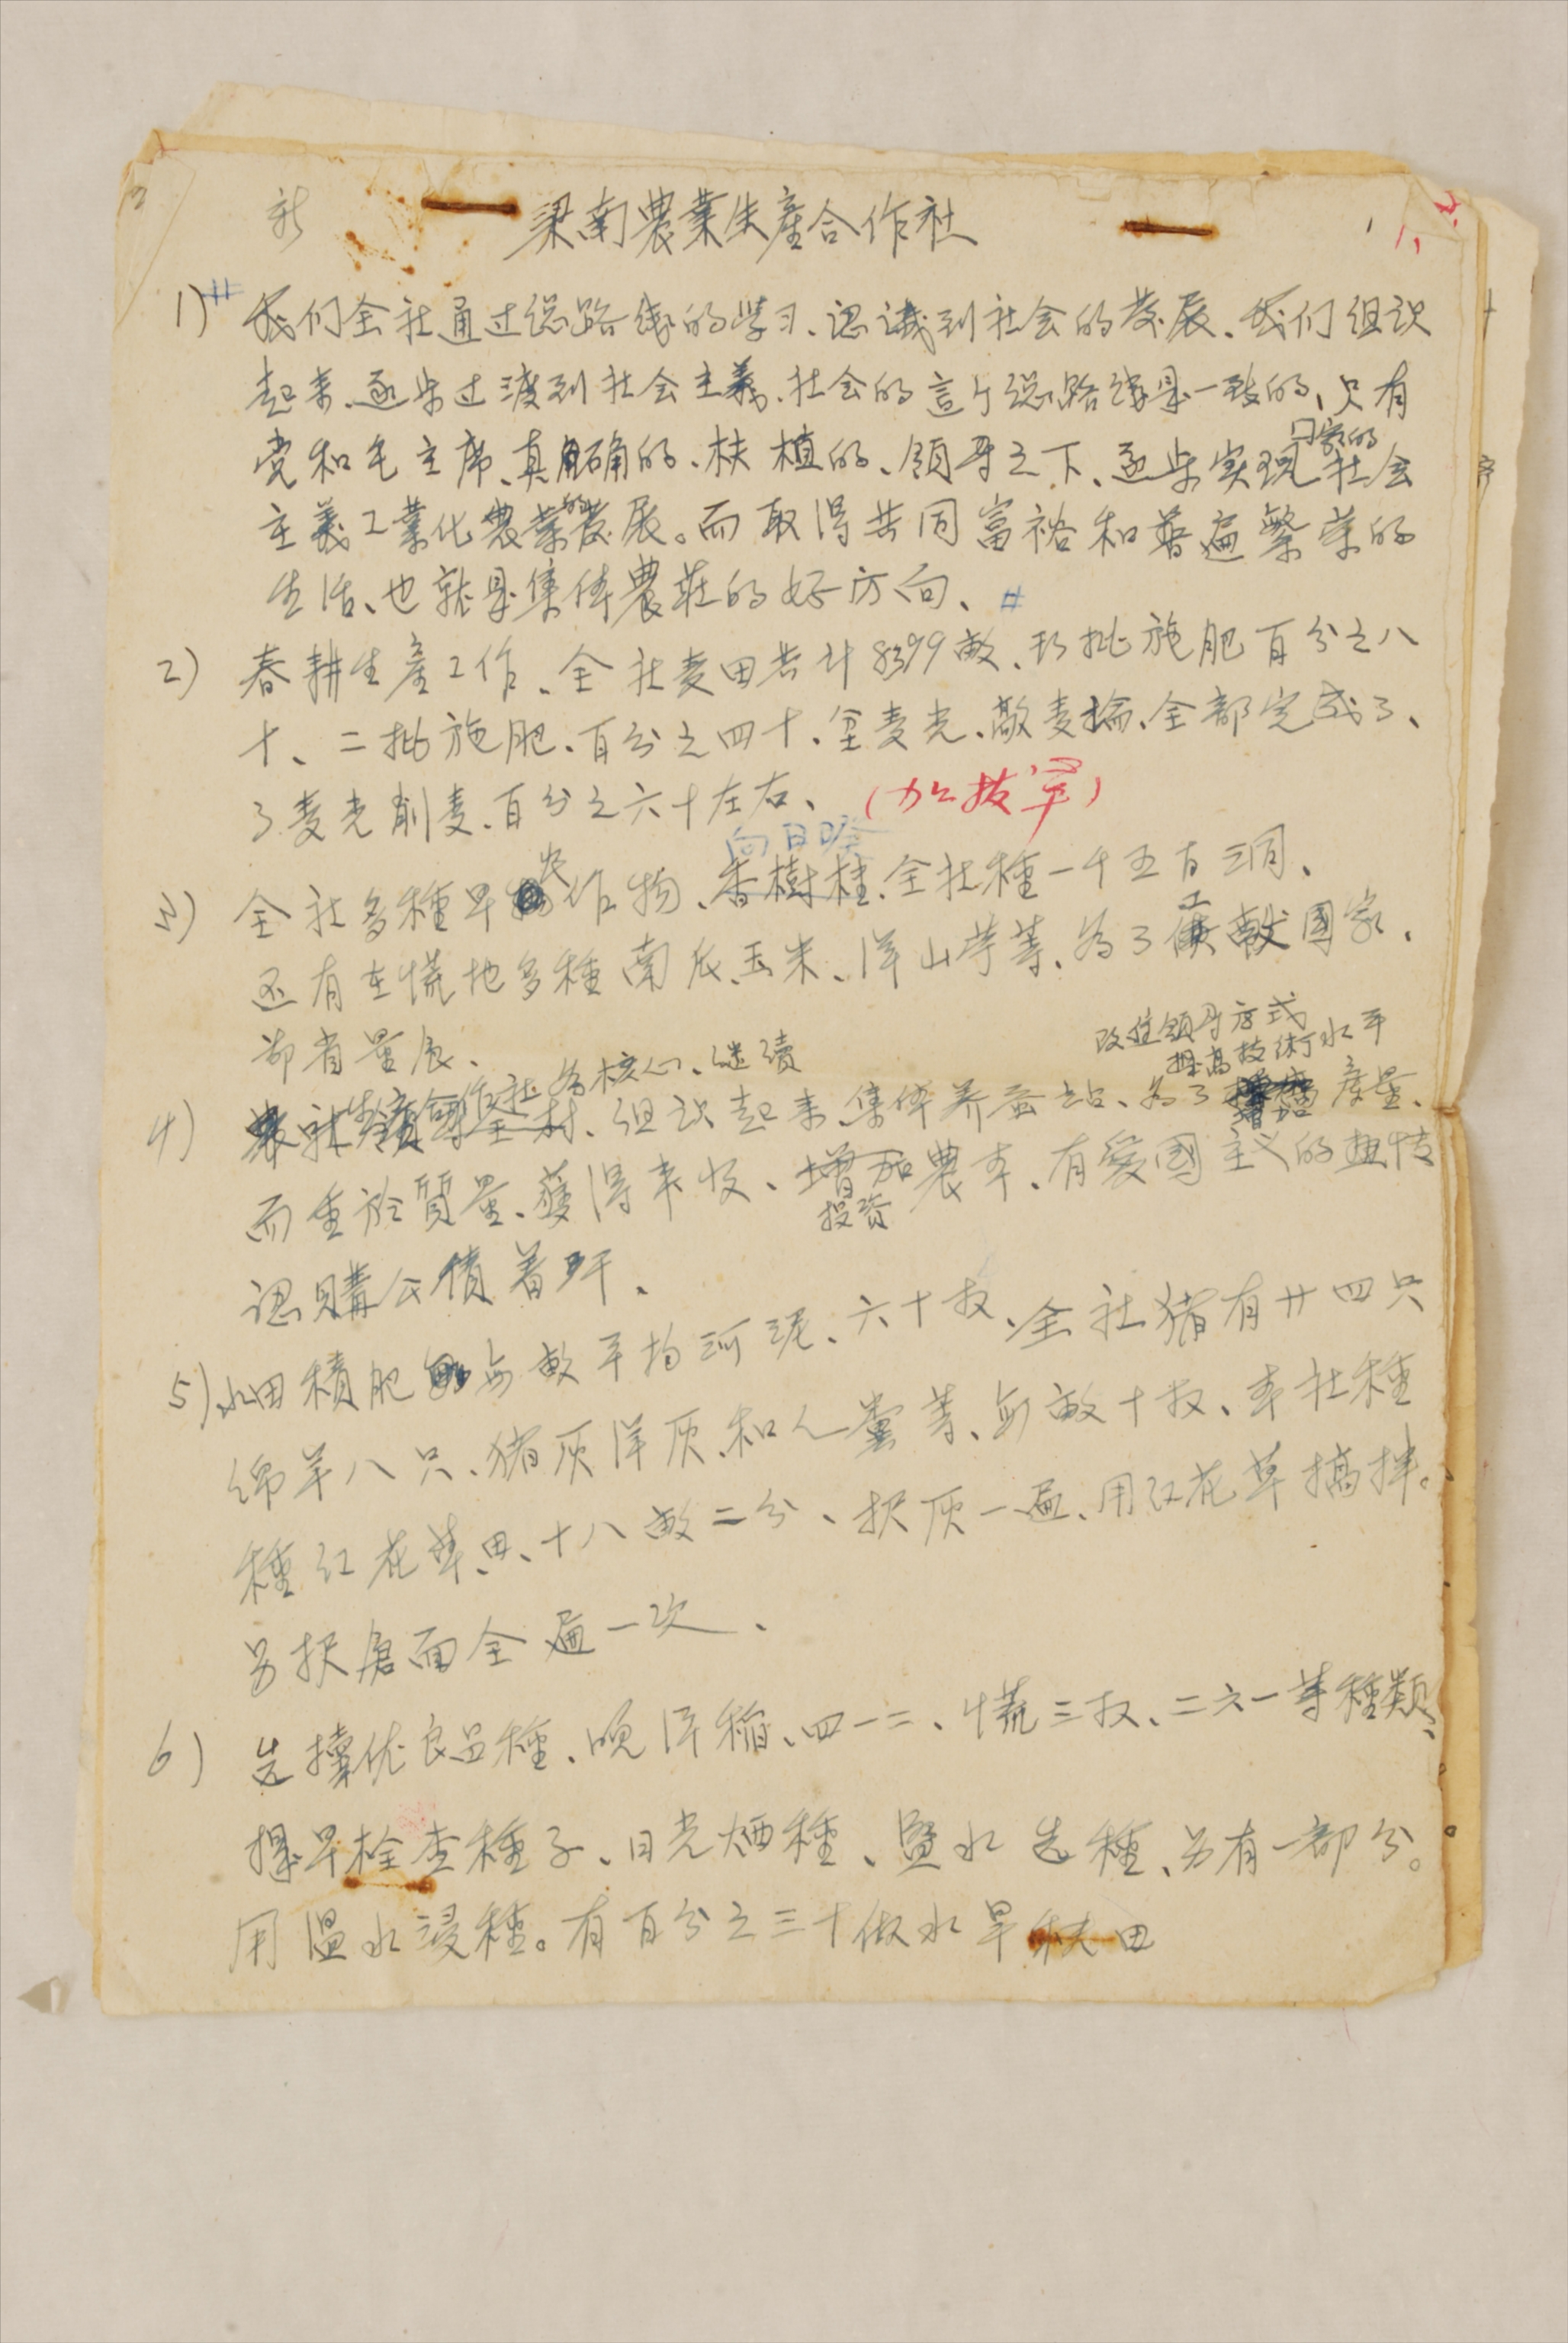 新 梁南農業生産合作社
1) 我们全社通过总路线的学习、認識到社会的發展、我们组识
起来、逐步过渡到社会主義、社会的這个总路缐是一致的、只有
党和毛主席、真确的、扶植的、領导之下、逐步实现国家的社会
主義工業化農業的發展。而取得共同富裕和普遍繁荣的
生活、也就是集体農莊的好方向、
2) 春耕生産工作、全社麦田共计 亩、批施肥百分之八
十、二批施肥、百分之四十、麦、敲麦棆、全部完成了、
了麦 削麦、百分之六十左右、(加拔草)
向日葵
3) 全社多種早农作物、香樹種、全社種一千五百 、
还有在慌地多種南瓜、玉米、洋山芋等、为了貢献國家、
都有量展、
改進領导方式
提高技術水平
生産合作社为核心、继续
4) 全村、组识起来集体养蚕站、为了 産量、
而重於質量、獲得丰收、增加農本、有爱國主义的热情
投资
認購公債着 、
5) 水田積肥每亩平均河泥、六十担、全社猪有廿四只
绵羊八只、猪灰洋灰、和人糞等、每亩十担、本社種
種红花草田、十八亩二分、 灰一遍、用红花草搞拌。
另 面全遍一次、
6) 选擇优良品種、晚洋稲、四一二、慌三担、二六一等種類、
提早栓查種子、日光晒種、盬水选種、另有一部分。
用温水浸種。有百分之三十做水旱秧田